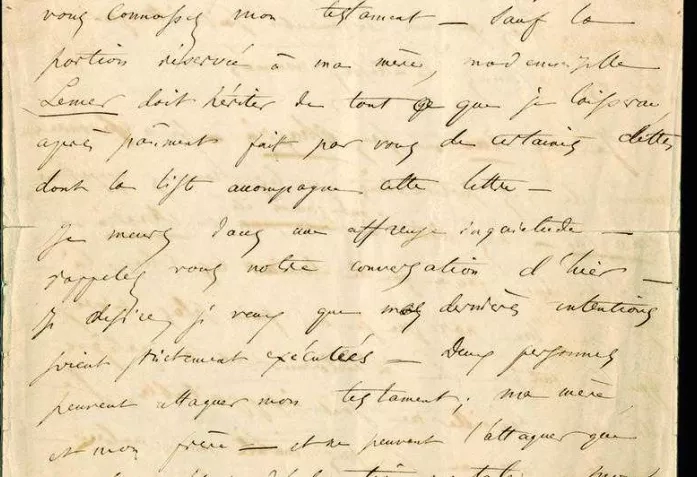 vous connaissez mon testament — Sauf la
portion réservée à ma mère, mademoiselle
Lemer doit hériter de tout ce que je laisserai
après paiment fait par vous de certaines dettes
dont la liste accompagne cette lettre —
Je meurs dans une affreuse inquiétude —
rappelez vous notre conversation d'hier —
je désire, je veux que mes dernières intentions
soient strictement exécutées — Deux personnes
peuvent attaquer mon testament; ma mère
et mon frère — et ne peuvent l'attaquer que